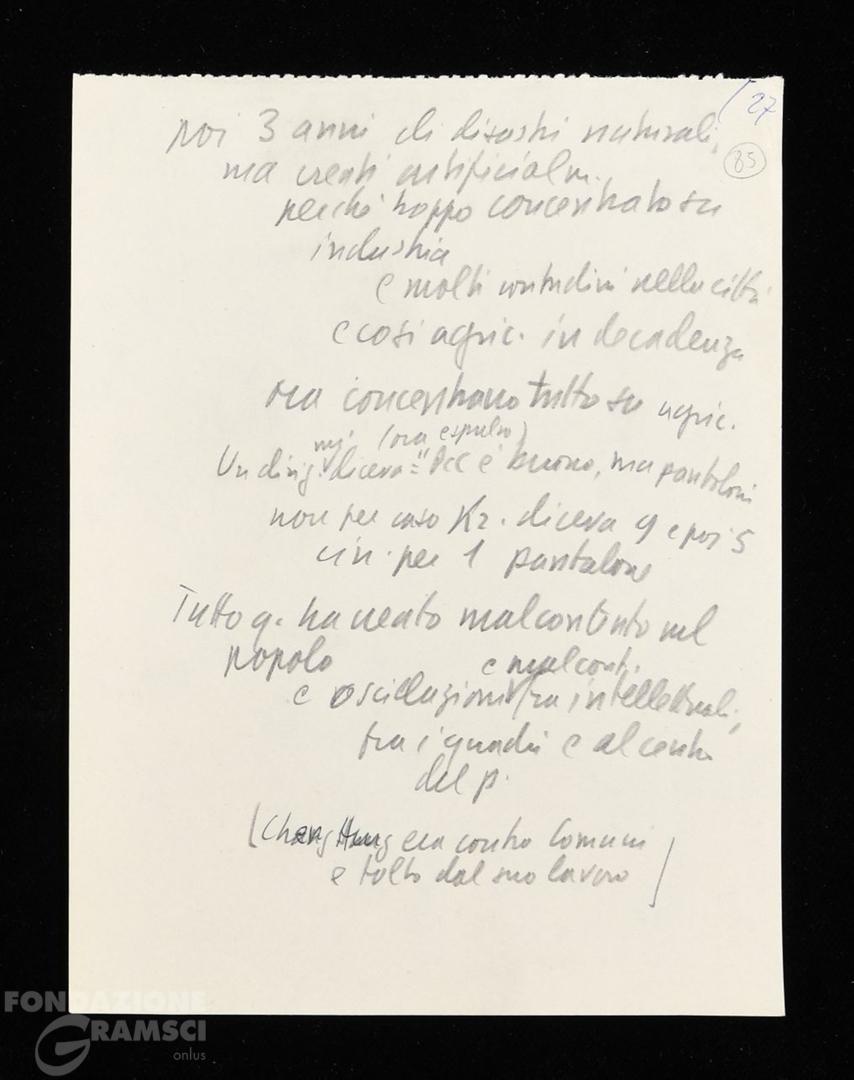 27
85
poi 3 anni di disastri naturali,
ma creati artificialm.
perché troppo concentrato su
industria
e molti contadini nelle città
e così agric. in decadenza
ora concentrano tutto su agric.
(ora espulso)
Un dirig. diceva = "PCC è buono, ma pantaloni
non per caso Kr. diceva 9 e poi 5
cin. per 1 pantalone
Tutto q. ha creato malcontento nel
popolo
e malcont.
e oscillazioni tra intellettuali,
tra i quadri e al centro
del p.
(Chang Hung era contro Comuni
e tolto dal suo lavoro)
FONDAZIONE
GRAMSCI
onlus